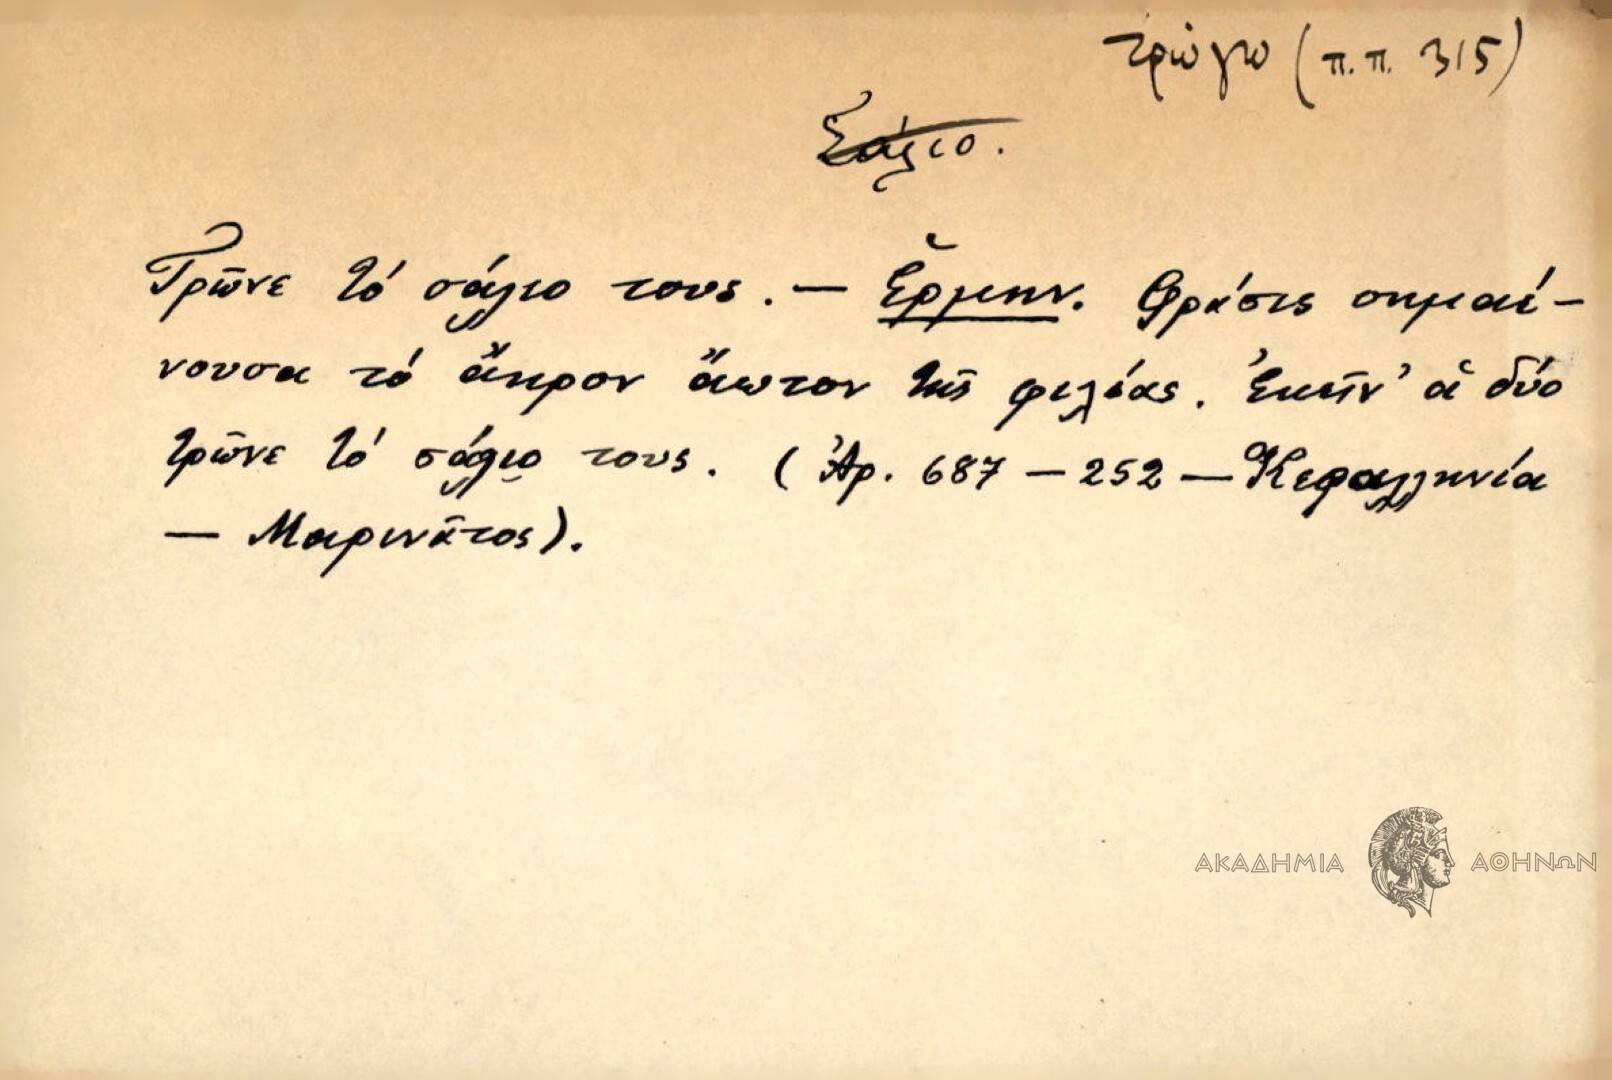 τρώγω (π.π. 315)
Σάλιο.
Τρῶνε τό σάλιο τους. — Ἑρμην. Φράσις σημαί-
νουσα τό ἄκρον ἄωτον τῆς φιλίας. Ἐκεῖν' ἁ δύο
τρῶνε τό σάλιο τους. (Ἀρ. 687 — 252 — Κεφαλληνία
— Μαρινᾶτος).
ΑΚΑΔΗΜΙΑ ΑΘΗΝΩΝ